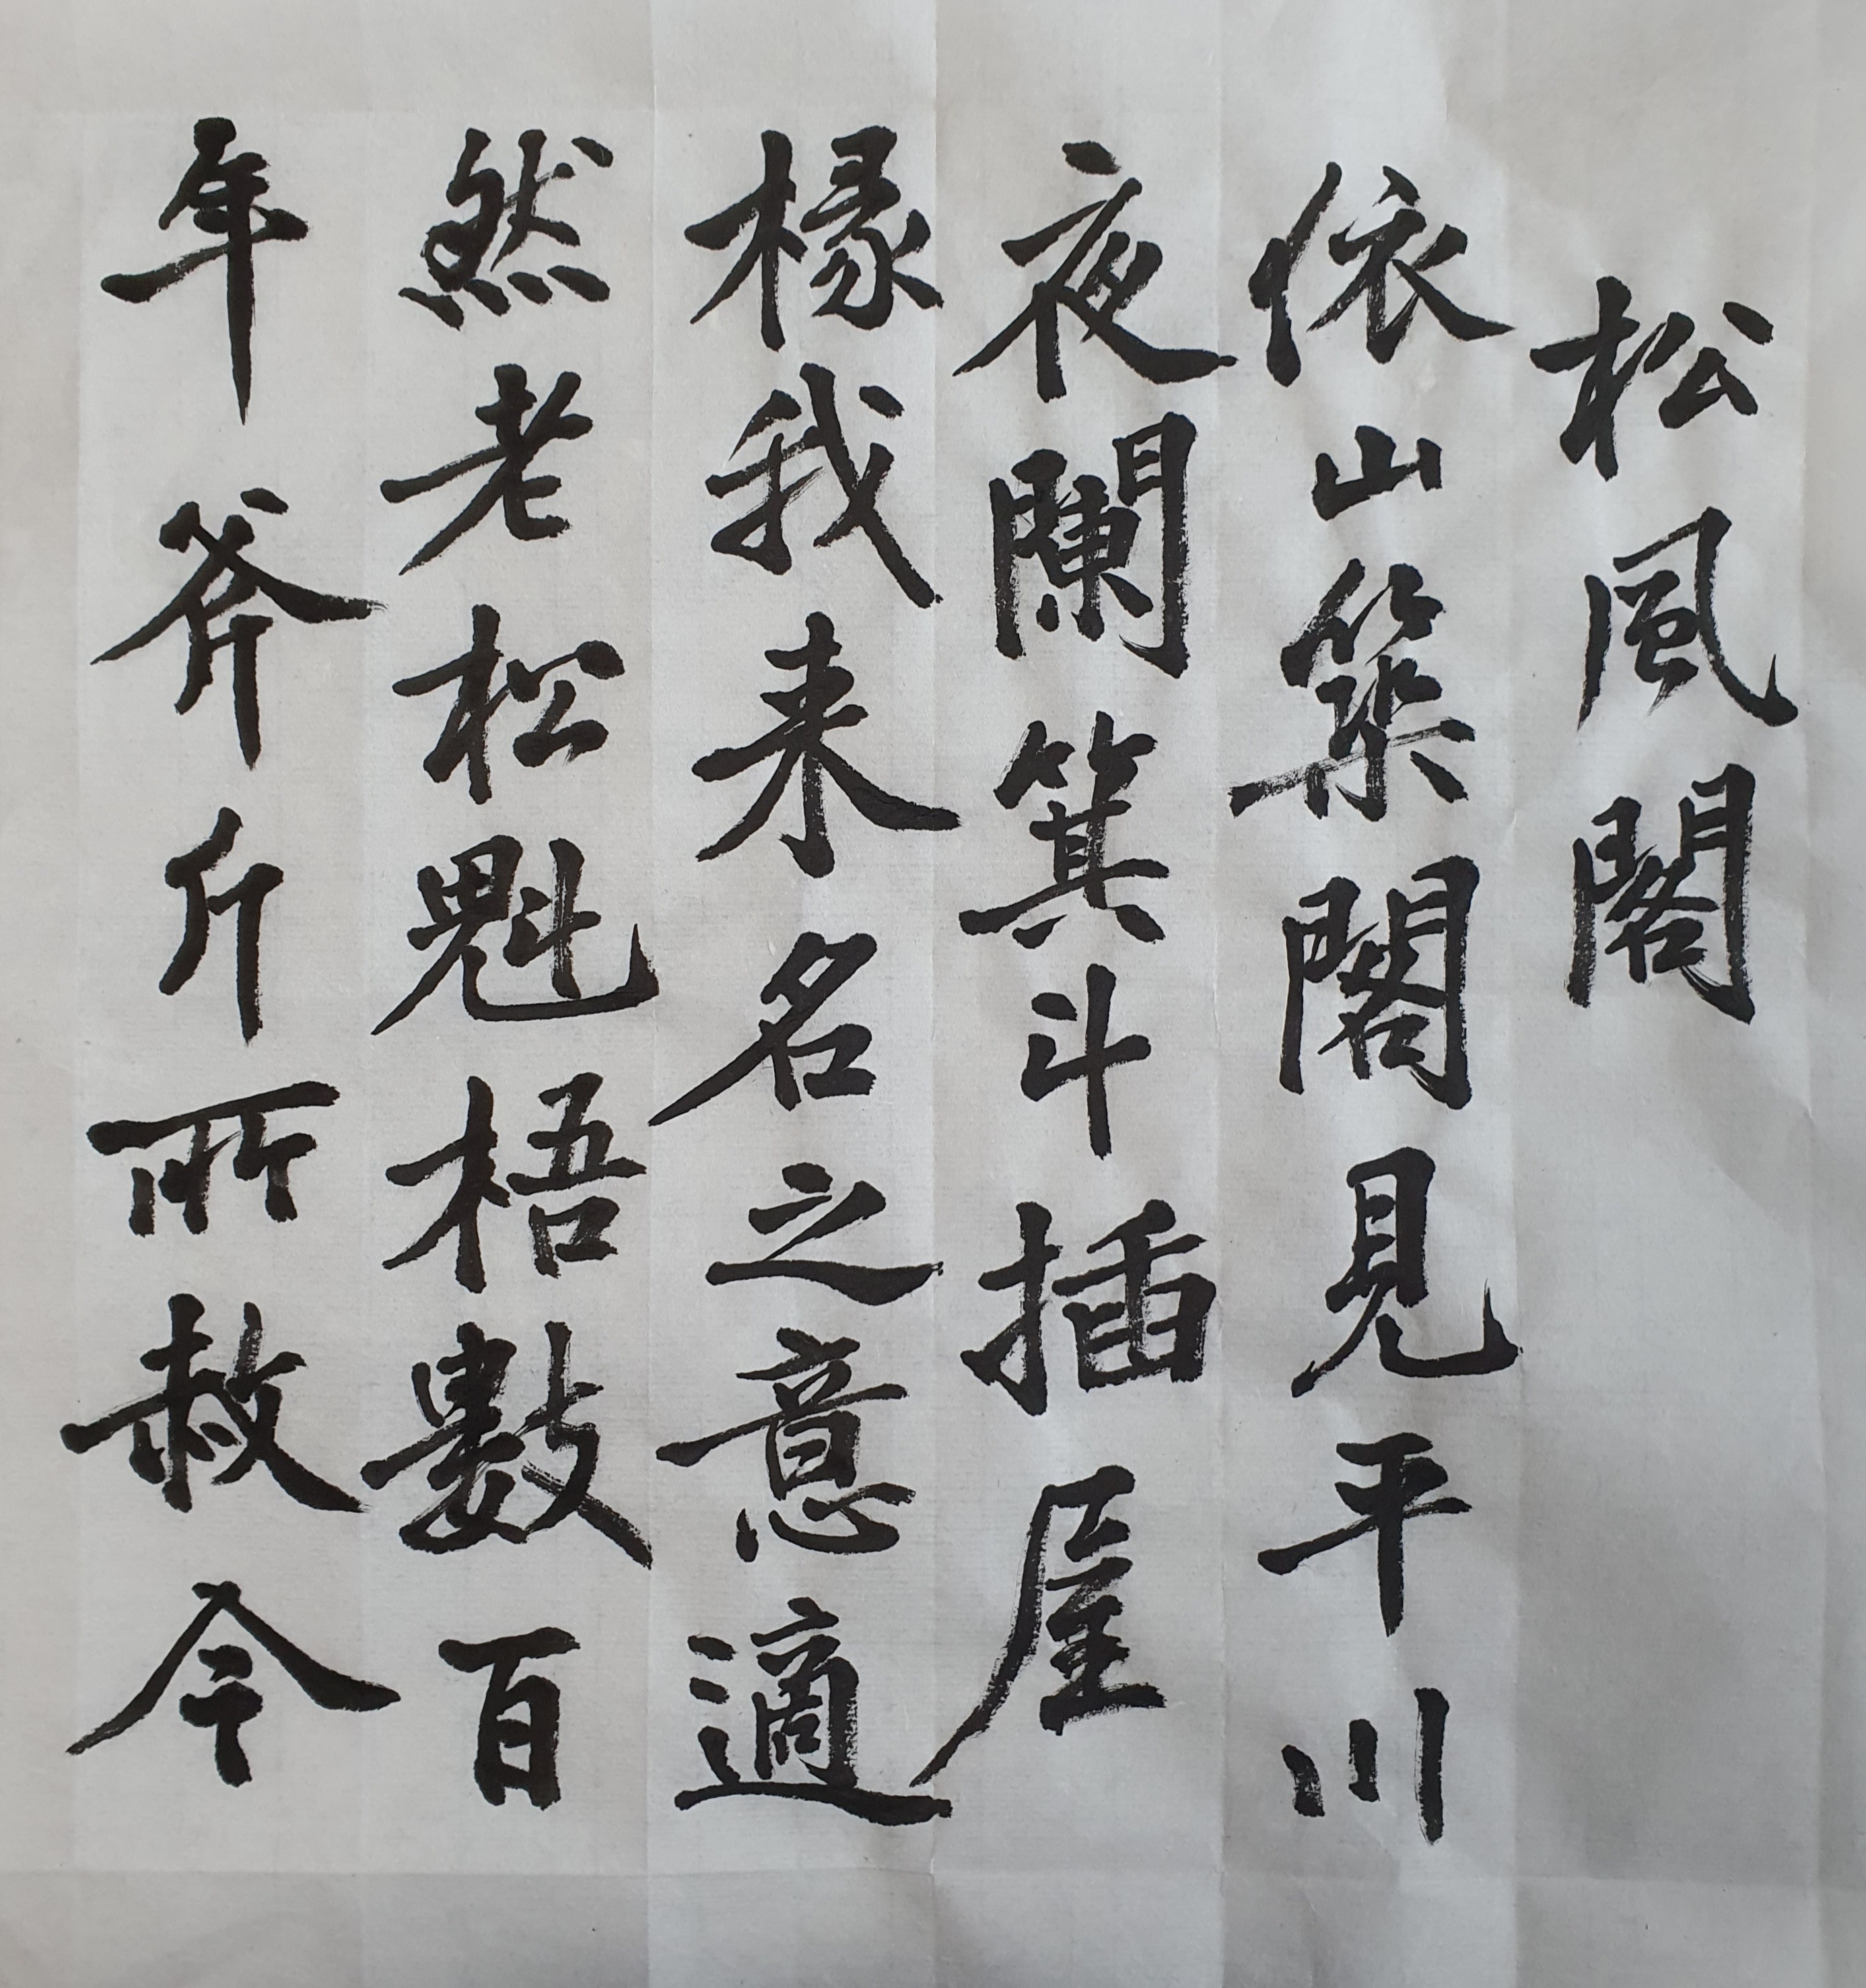 松風閣
依山築閣見平川
夜闌箕斗插屋
椽我来名之意適
然老松魁梧數百
年斧斤所赦今